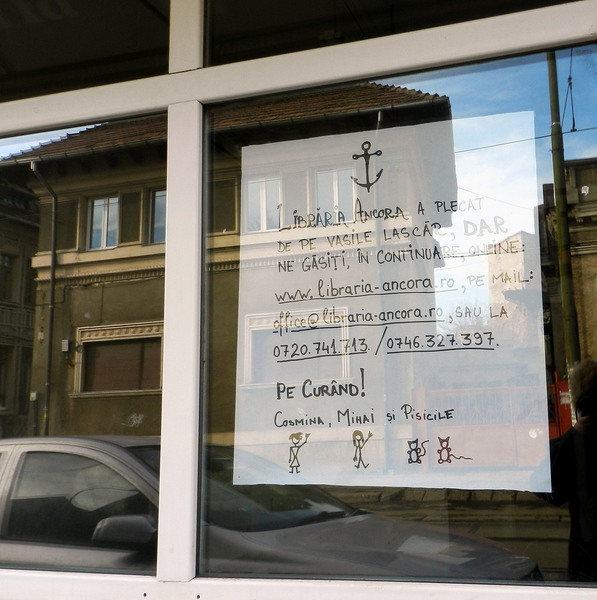 LIBRĂRIA ANCORA A PLECAT
DE PE VASILE LASCĂR, DAR
NE GĂSIȚI, ÎN CONTINUARE, ONLINE:
www.libraria-ancora.ro, PE MAIL:
office@libraria-ancora.ro, SAU LA
0720.741.713 / 0746.327.397.
PE CURÂND!
COSMINA, MIHAI ȘI PISICILE